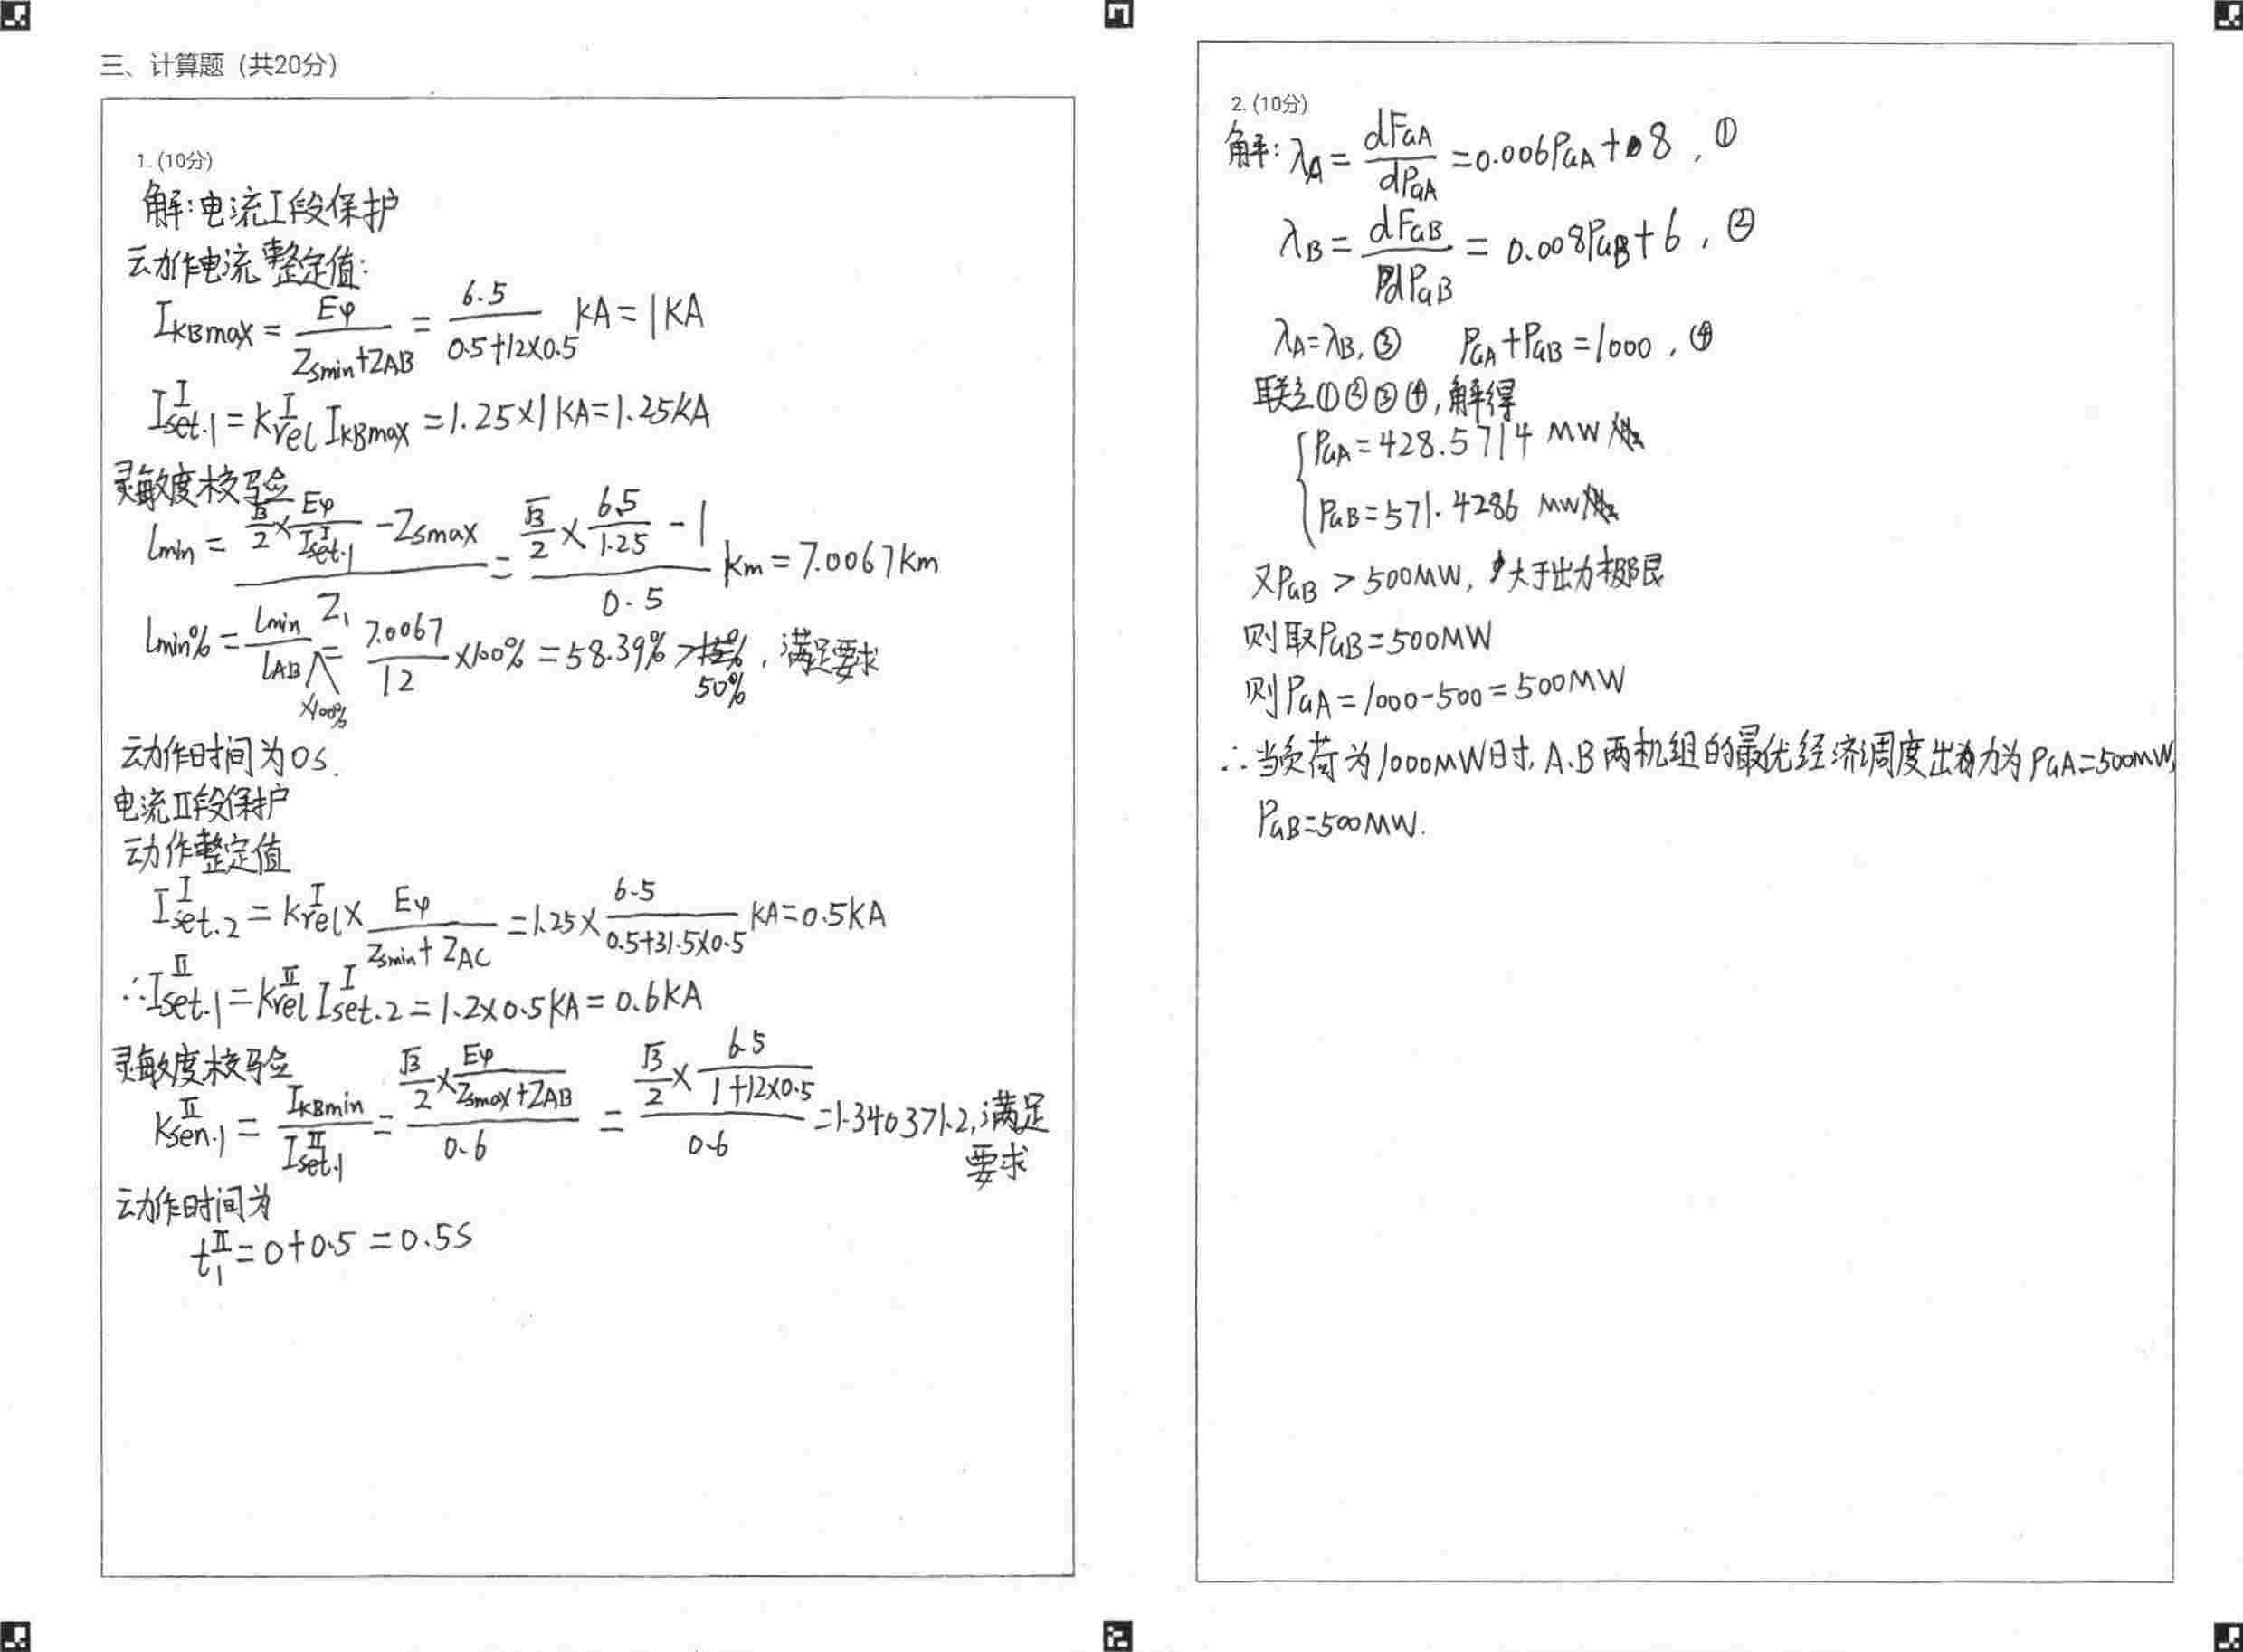 三、计算题（共20分）
1. (10分)
解：电流I段保护
动作电流整定值：
I_KBmax = Eφ / (Zsmin+ZAB) = 6.5 / (0.5+12×0.5) kA = 1kA
I^I_set.1 = K^I_rel I_KBmax = 1.25×1kA = 1.25kA
灵敏度校验
lmin = (√3/2 × Eφ/I^I_set.1 - Zsmax) / Z1 = (√3/2 × 6.5/1.25 - 1) / 0.5 km = 7.0067km
lmin% = lmin/lAB ×100% = 7.0067/12 ×100% = 58.39% > 50%, 满足要求
动作时间为0s.
电流II段保护
动作整定值
I^I_set.2 = K^I_rel × Eφ / (Zsmin+ZAC) = 1.25× 6.5 / (0.5+31.5×0.5) kA = 0.5kA
∴ I^II_set.1 = K^II_rel I^I_set.2 = 1.2×0.5kA = 0.6kA
灵敏度校验
K^II_sen.1 = I_KBmin / I^II_set.1 = (√3/2 × Eφ/(Zsmax+ZAB)) / 0.6 = (√3/2 × 6.5/(1+12×0.5)) / 0.6 = 1.3403>1.2, 满足
要求
动作时间为
t^II_1 = 0+0.5 = 0.5s
2. (10分)
解：λA = dFGA/dPGA = 0.006PGA+8, ①
λB = dFGB/dPGB = 0.008PGB+6, ②
λA=λB, ③ PGA+PGB=1000, ④
联立①②③④, 解得
PGA=428.5714 MW
PGB=571.4286 MW
又PGB > 500MW, 大于出力极限
则取PGB=500MW
则PGA=1000-500=500MW
∴当负荷为1000MW时, A.B两机组的最优经济调度出力为PGA=500MW,
PGB=500MW.